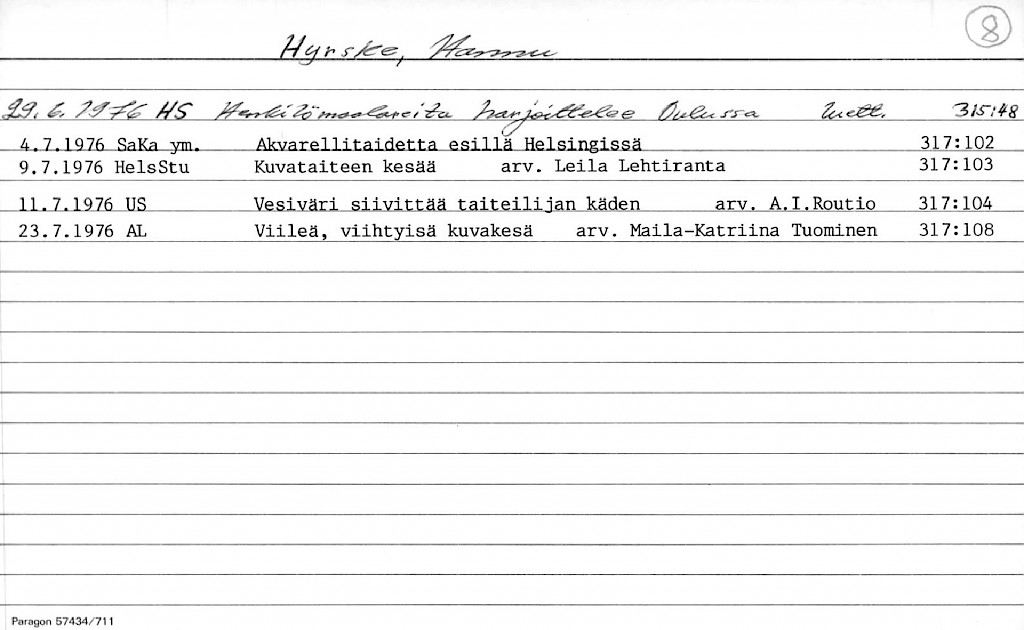 8
Hynske, Hannu
29.6.1976 HS Henkilömaalareita harjoittelee Oulussa luett. 315:48
4.7.1976 SaKa ym. Akvarellitaidetta esillä Helsingissä 317:102
9.7.1976 HelsStu Kuvataiteen kesää arv. Leila Lehtiranta 317:103
11.7.1976 US Vesiväri siivittää taiteilijan käden arv. A.I.Routio 317:104
23.7.1976 AL Viileä, viihtyisä kuvakesä arv. Maila-Katriina Tuominen 317:108
Paragon 57434/711